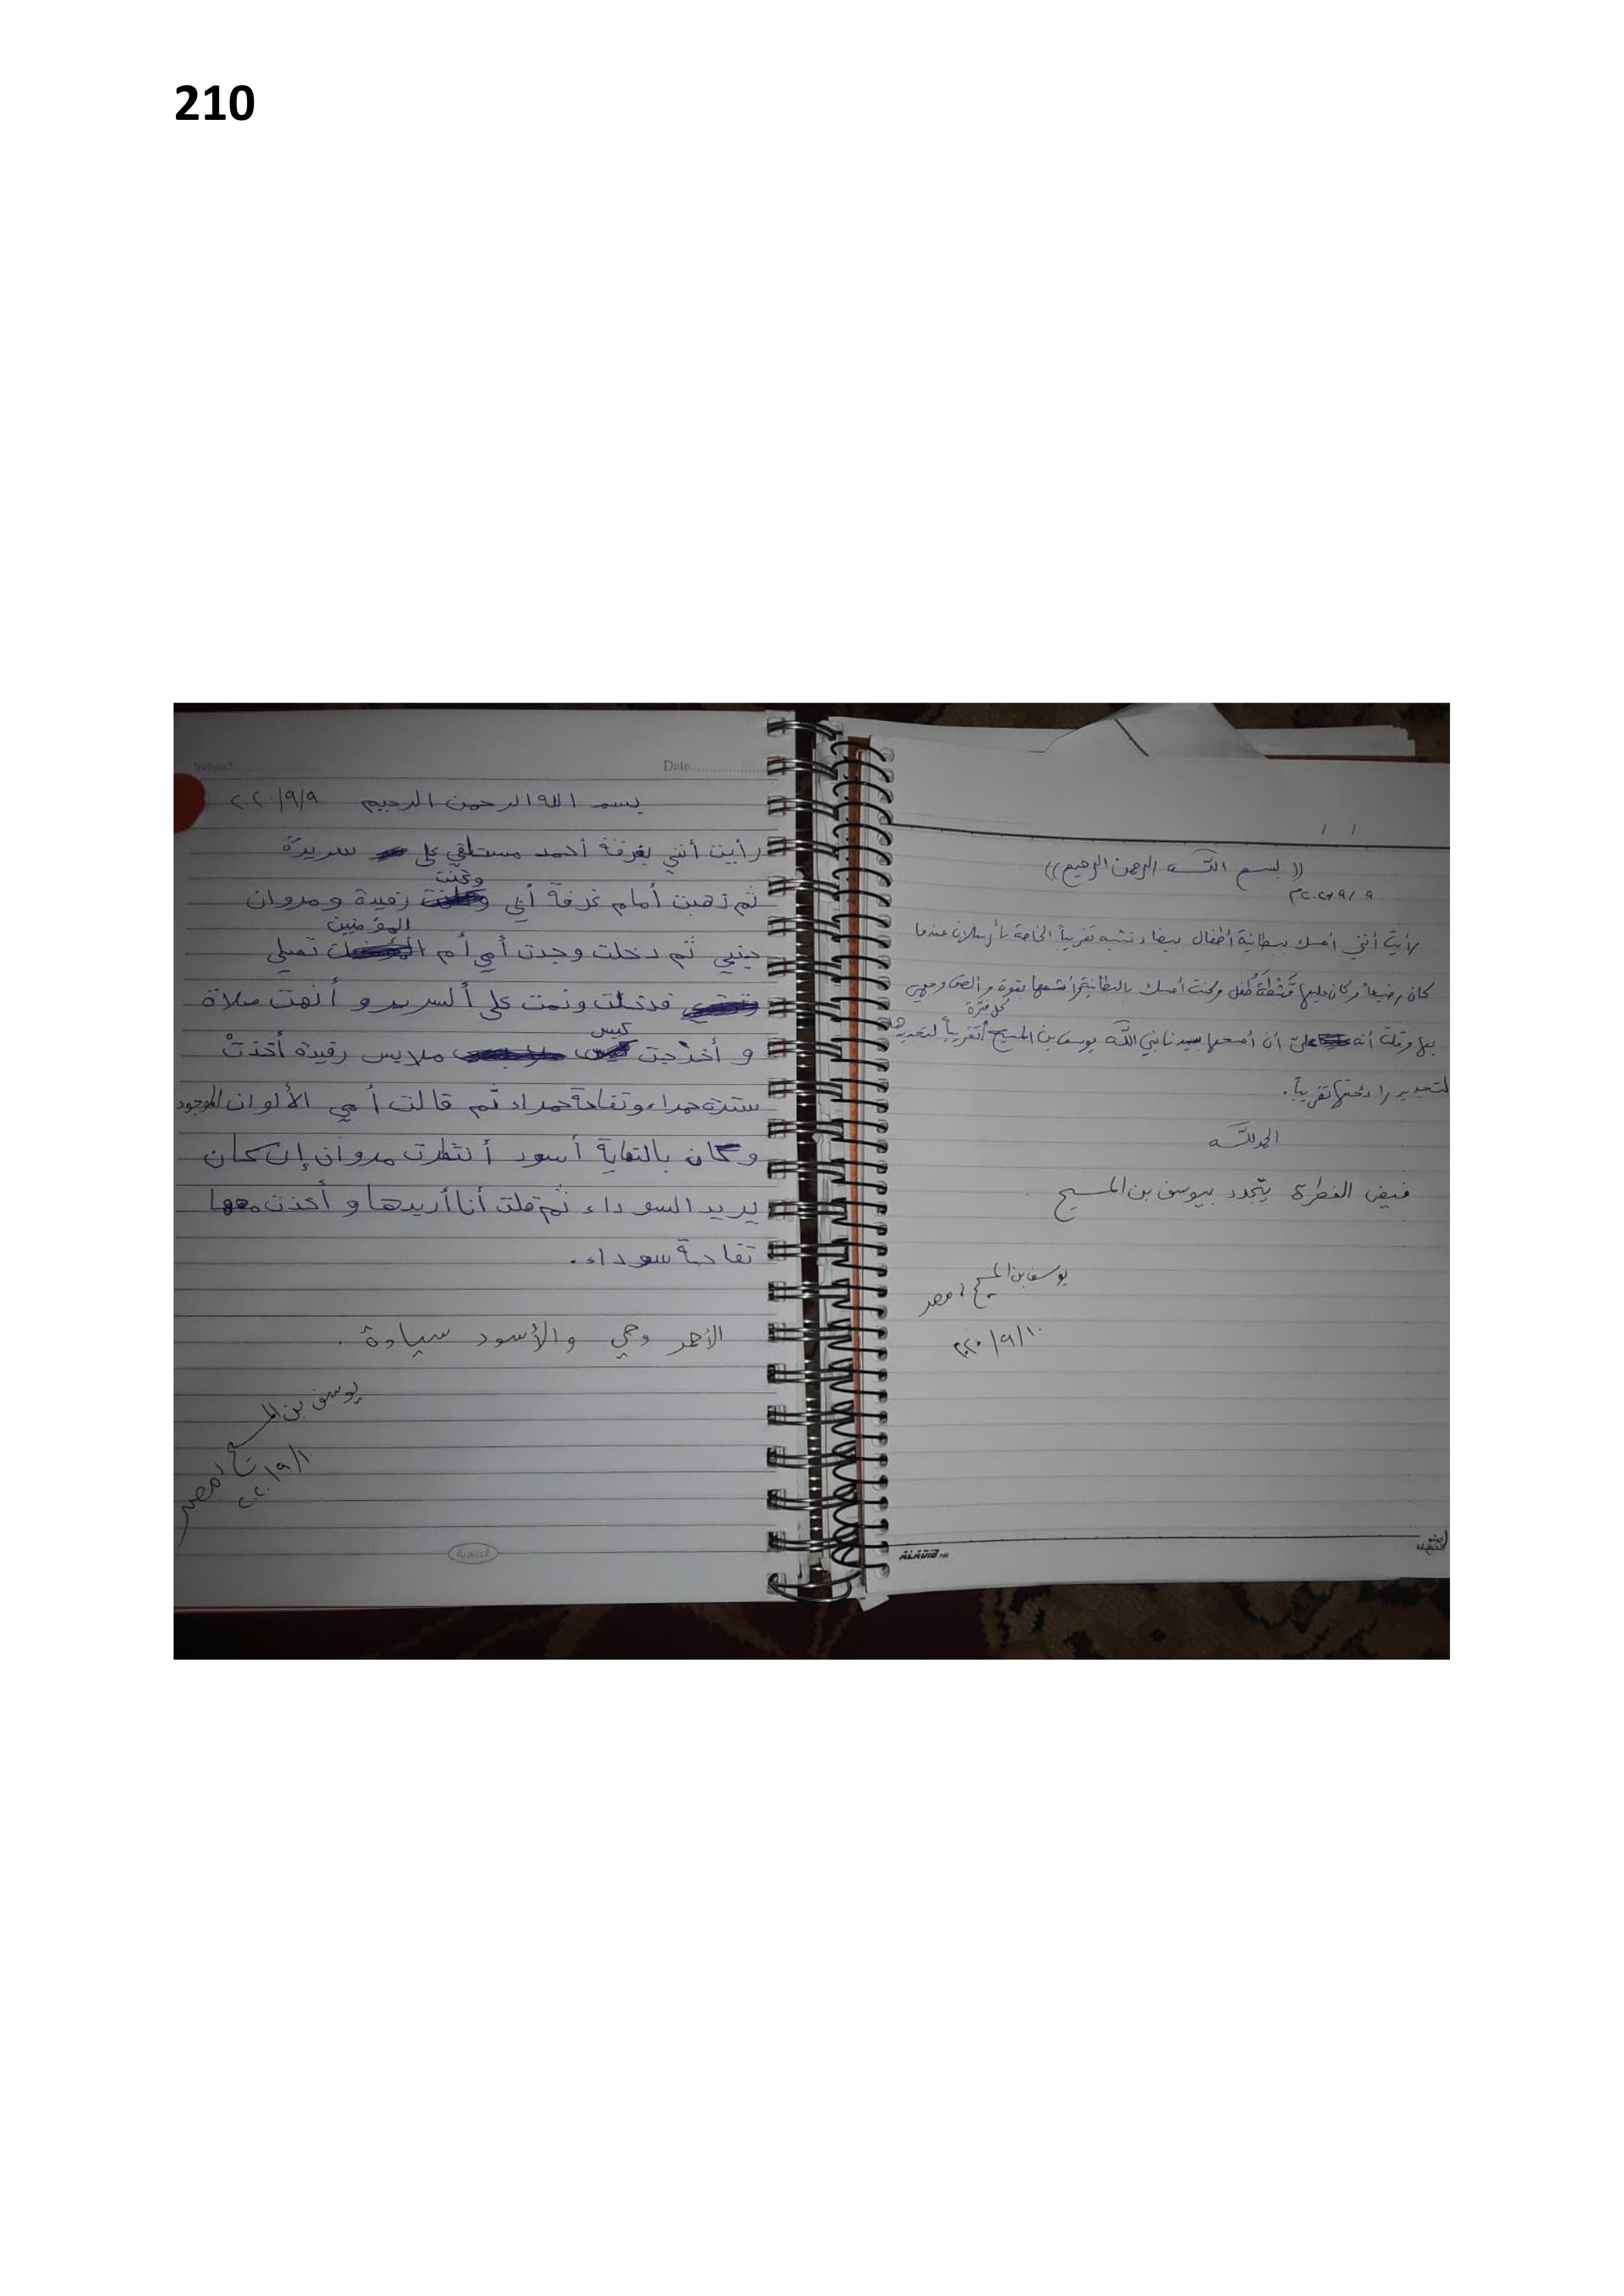 210
/ /
(( بسم اللـه الرحمن الرحيم ))
٩/٩/٢٠٢٠م
رأيت أنني أمسك بطانية أطفال بيضاء تشبه تقريباً الخاصة بأرسلان عندما
كان رضيعاً وكان عليها قَشْطَة طفل وكنت أمسك بالبطانية وأشمها بقوة و الصق وجهي
كل فترة
بها وقلت أنه علىّ أن أمسحها بسيدنا نبي اللـه يوسف بن المسيح تقريباً لتجديدها
لتجديد رائحتها تقريباً.
الحمد للـه
فيض الفطرة يتجدد بيوسف بن المسيح
يوسف بن المسيح ، مصر
٢٠٢٠/٩/١٠
ALADIB
Subject
Date
بسم الله الرحمن الرحيم ٢٠٢٠/٩/٩
رأيت أنني بغرفة أحمد مستلقي على سريرة
وكنت
ثم ذهبت أمام غرفة أبي رفيدة ومروان
المؤمنين
جنبي ثم دخلت وجدت أمي أم تصلي
فدخلت ونمت على ألسرير و أنهت صلاة
كيس
و أخرجت ملابس رفيدة أخذتْ
سترة حمراء وتفاحة حمراء ثم قالت أمي الألوان الموجود
وكان بالنهاية أسود أنتظرت مروان إن كان
يريد السوداء ثم قلت أنا أريدها و أخذت معها
تفاحة سوداء.
الأحمر وحي والأسود سيادة .
يوسف بن المسيح ، مصر